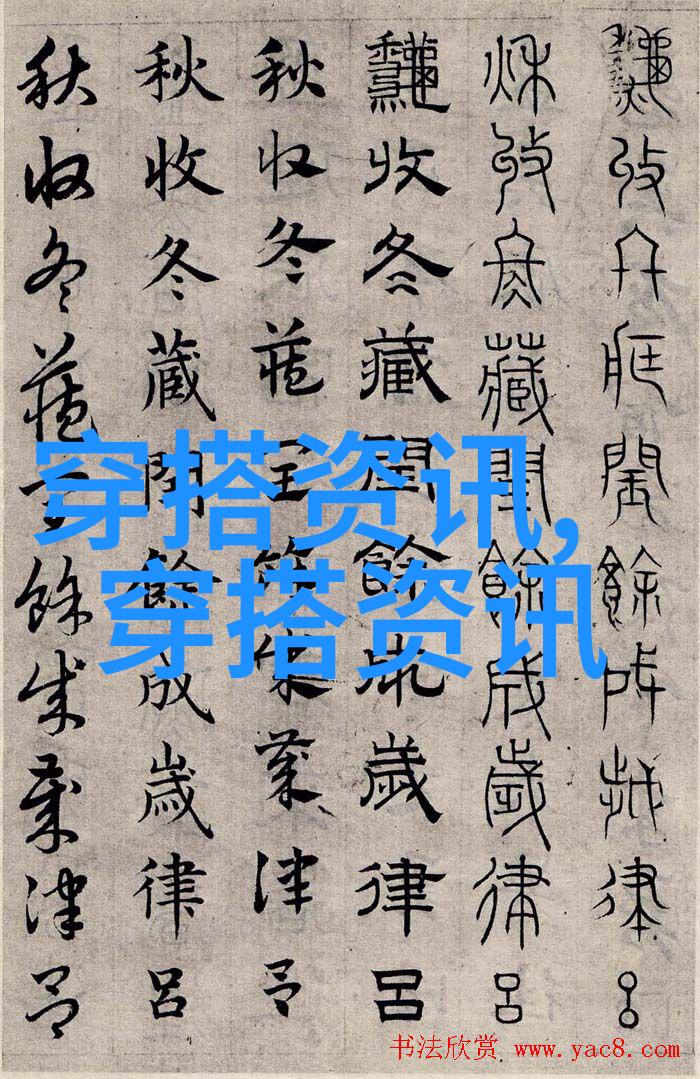 秋收冬藏閏餘成歲律呂
秋收冬藏閏餘成歲律呂
秋收冬藏閏餘成歲律呂
秋收冬藏閏餘成歲律呂
秋收冬藏閏餘成歲律呂
秋收冬藏閏餘成歲律呂
穿搭资讯,
穿搭资讯
书法欣赏 www.yac8.com